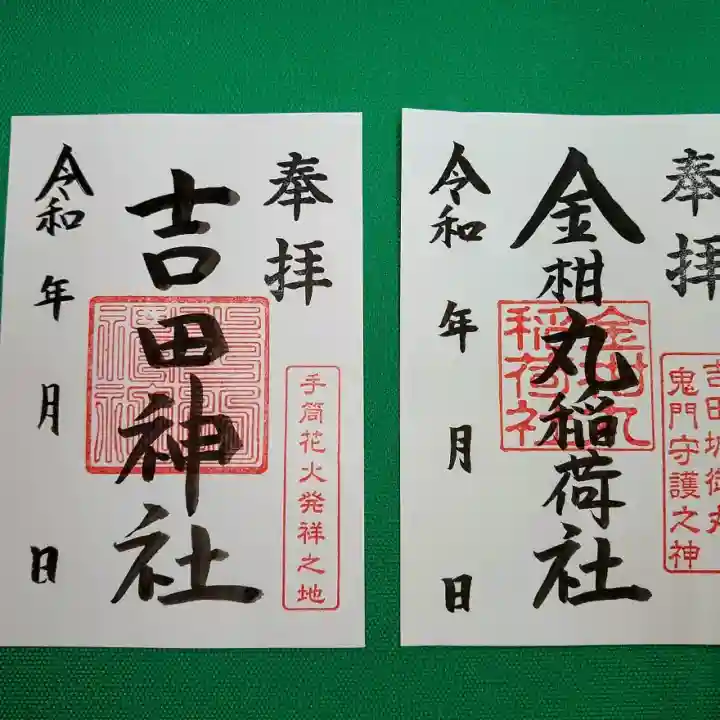 奉拝
吉田神社
吉田神社
手筒花火発祥之地
令和 年 月 日
奉拝
吉田城御丸
鬼門守護之神
金柑丸稲荷社
金柑丸
稲荷社
令和 年 月 日